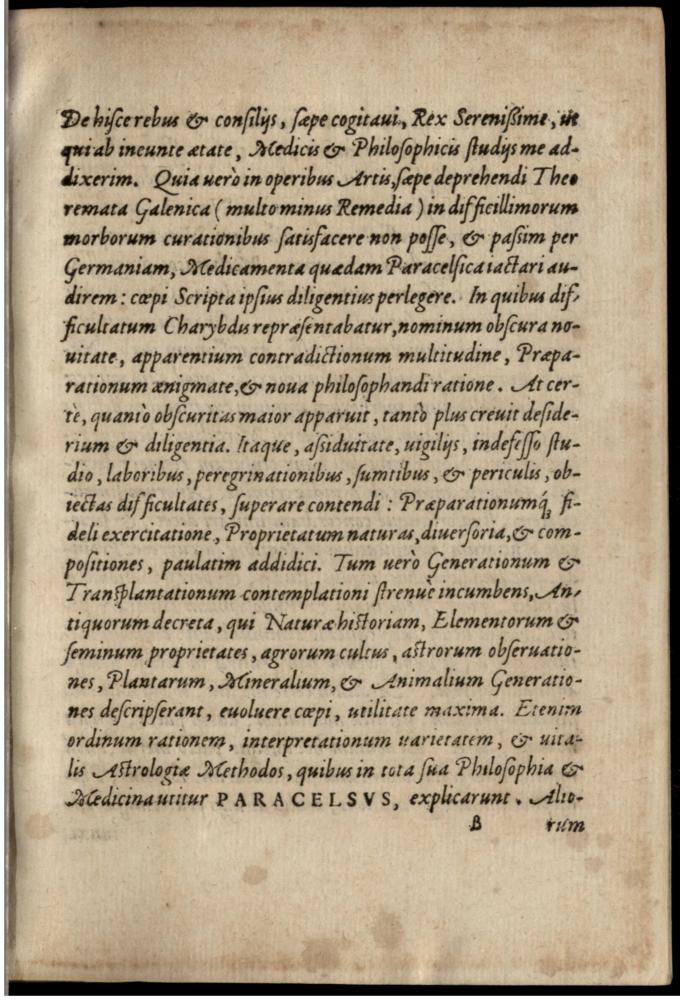 De hisce rebus & consilijs, sæpe cogitaui, Rex Sereniſsime, ut
qui ab incunte ætate, Medicis & Philosophicis ſtudijs me ad-
dixerim. Quia uerò in operibus Artis, ſæpe deprehendi Theo
remata Galenica (multo minus Remedia) in difficillimorum
morborum curationibus ſatisfacere non poſſe, & paſsim per
Germaniam, Medicamenta quædam Paracelſica iactari au-
direm: cœpi Scripta ipſius diligentius perlegere. In quibus dif-
ficultatum Charybdis repræſentabatur, nominum obſcura no-
uitate, apparentium contradictionum multitudine, Præpa-
rationum ænigmate, & noua philoſophandi ratione. At cer-
tè, quantò obſcuritas maior apparuit, tantò plus creuit deſide-
rium & diligentia. Itaque, aſsiduitate, uigilijs, indefeſſo ſtu-
dio, laboribus, peregrinationibus, ſumtibus, & periculis, ob-
iectas difficultates, ſuperare contendi: Præparationumq́ꝫ fi-
deli exercitatione, Proprietatum naturas, diuerſoria, & com-
poſitiones, paulatim addidici. Tum uerò Generationum &
Tranſplantationum contemplationi ſtrenuè incumbens, An-
tiquorum decreta, qui Naturæ hiſtoriam, Elementorum &
ſeminum proprietates, agrorum cultus, aſtrorum obſeruatio-
nes, Plantarum, Mineralium, & Animalium Generatio-
nes deſcripſerant, euoluere cœpi, utilitate maxima. Etenim
ordinum rationem, interpretationum uarietatem, & uita-
lis Aſtrologiæ Methodos, quibus in tota ſua Philoſophia &
Medicina utitur PARACELSVS, explicarunt. Alio-
B rum